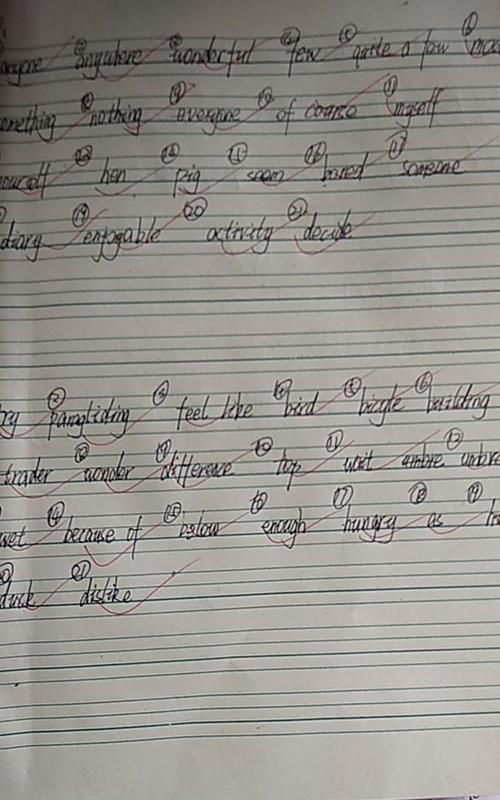 anyone ② anywhere ③ wonderful ④ few ⑤ quite a few ⑥
something ⑧ nothing ⑨ everyone ⑩ of course ⑪ myself
yourself ⑬ hen ⑭ pig ⑮ seem ⑯ bored ⑰ someone
diary ⑲ enjoyable ⑳ activity ㉑ decide
② paragliding ③ feel like ④ bird ⑤ bicycle ⑥ building
trader ⑧ wonder ⑨ difference ⑩ top ⑪ wait ⑫
wet ⑭ because of ⑮ below ⑯ enough ⑰ hungry ⑱ as ⑲
duck ㉑ dislike